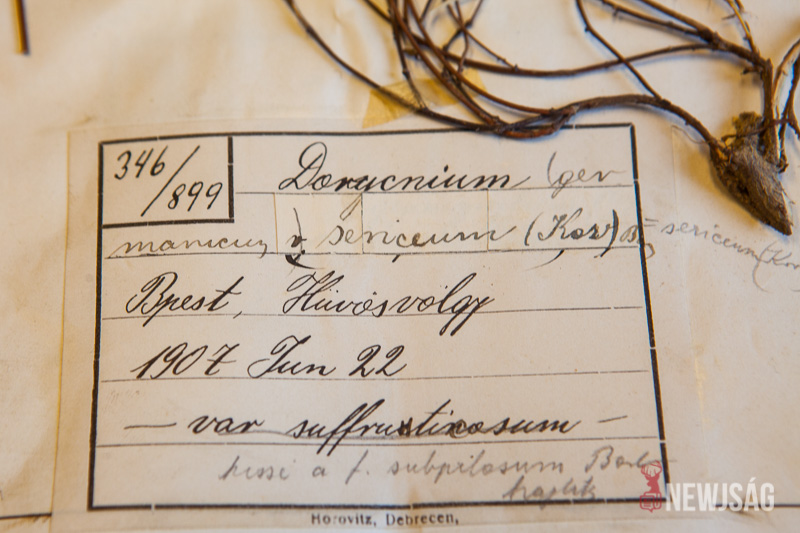 346/899
Dorycnium (ger
manicum v. sericeum (Kov) B = sericeum (Kov
Bpest, Hüvösvölgy
1907 Jun 22
— var suffruticosum —
f. subpilosum
Horovitz, Debrecen,
NEWJSÁG